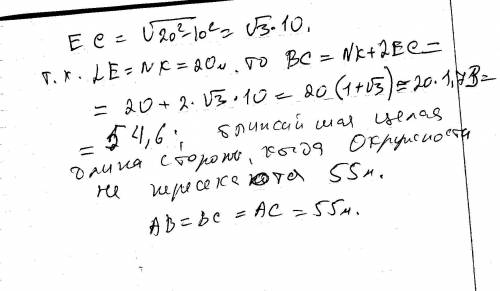 EC = √20²-10² = √3·10.
т.к. LE = NK = 20м. то BC = NK+2EC =
= 20 + 2·√3·10 = 20(1+√3) = 20·1,73 =
= 54,6; ближайшая целая
длина стороны, когда окружности
не пересекаются 55м.
AB = BC = AC = 55м.